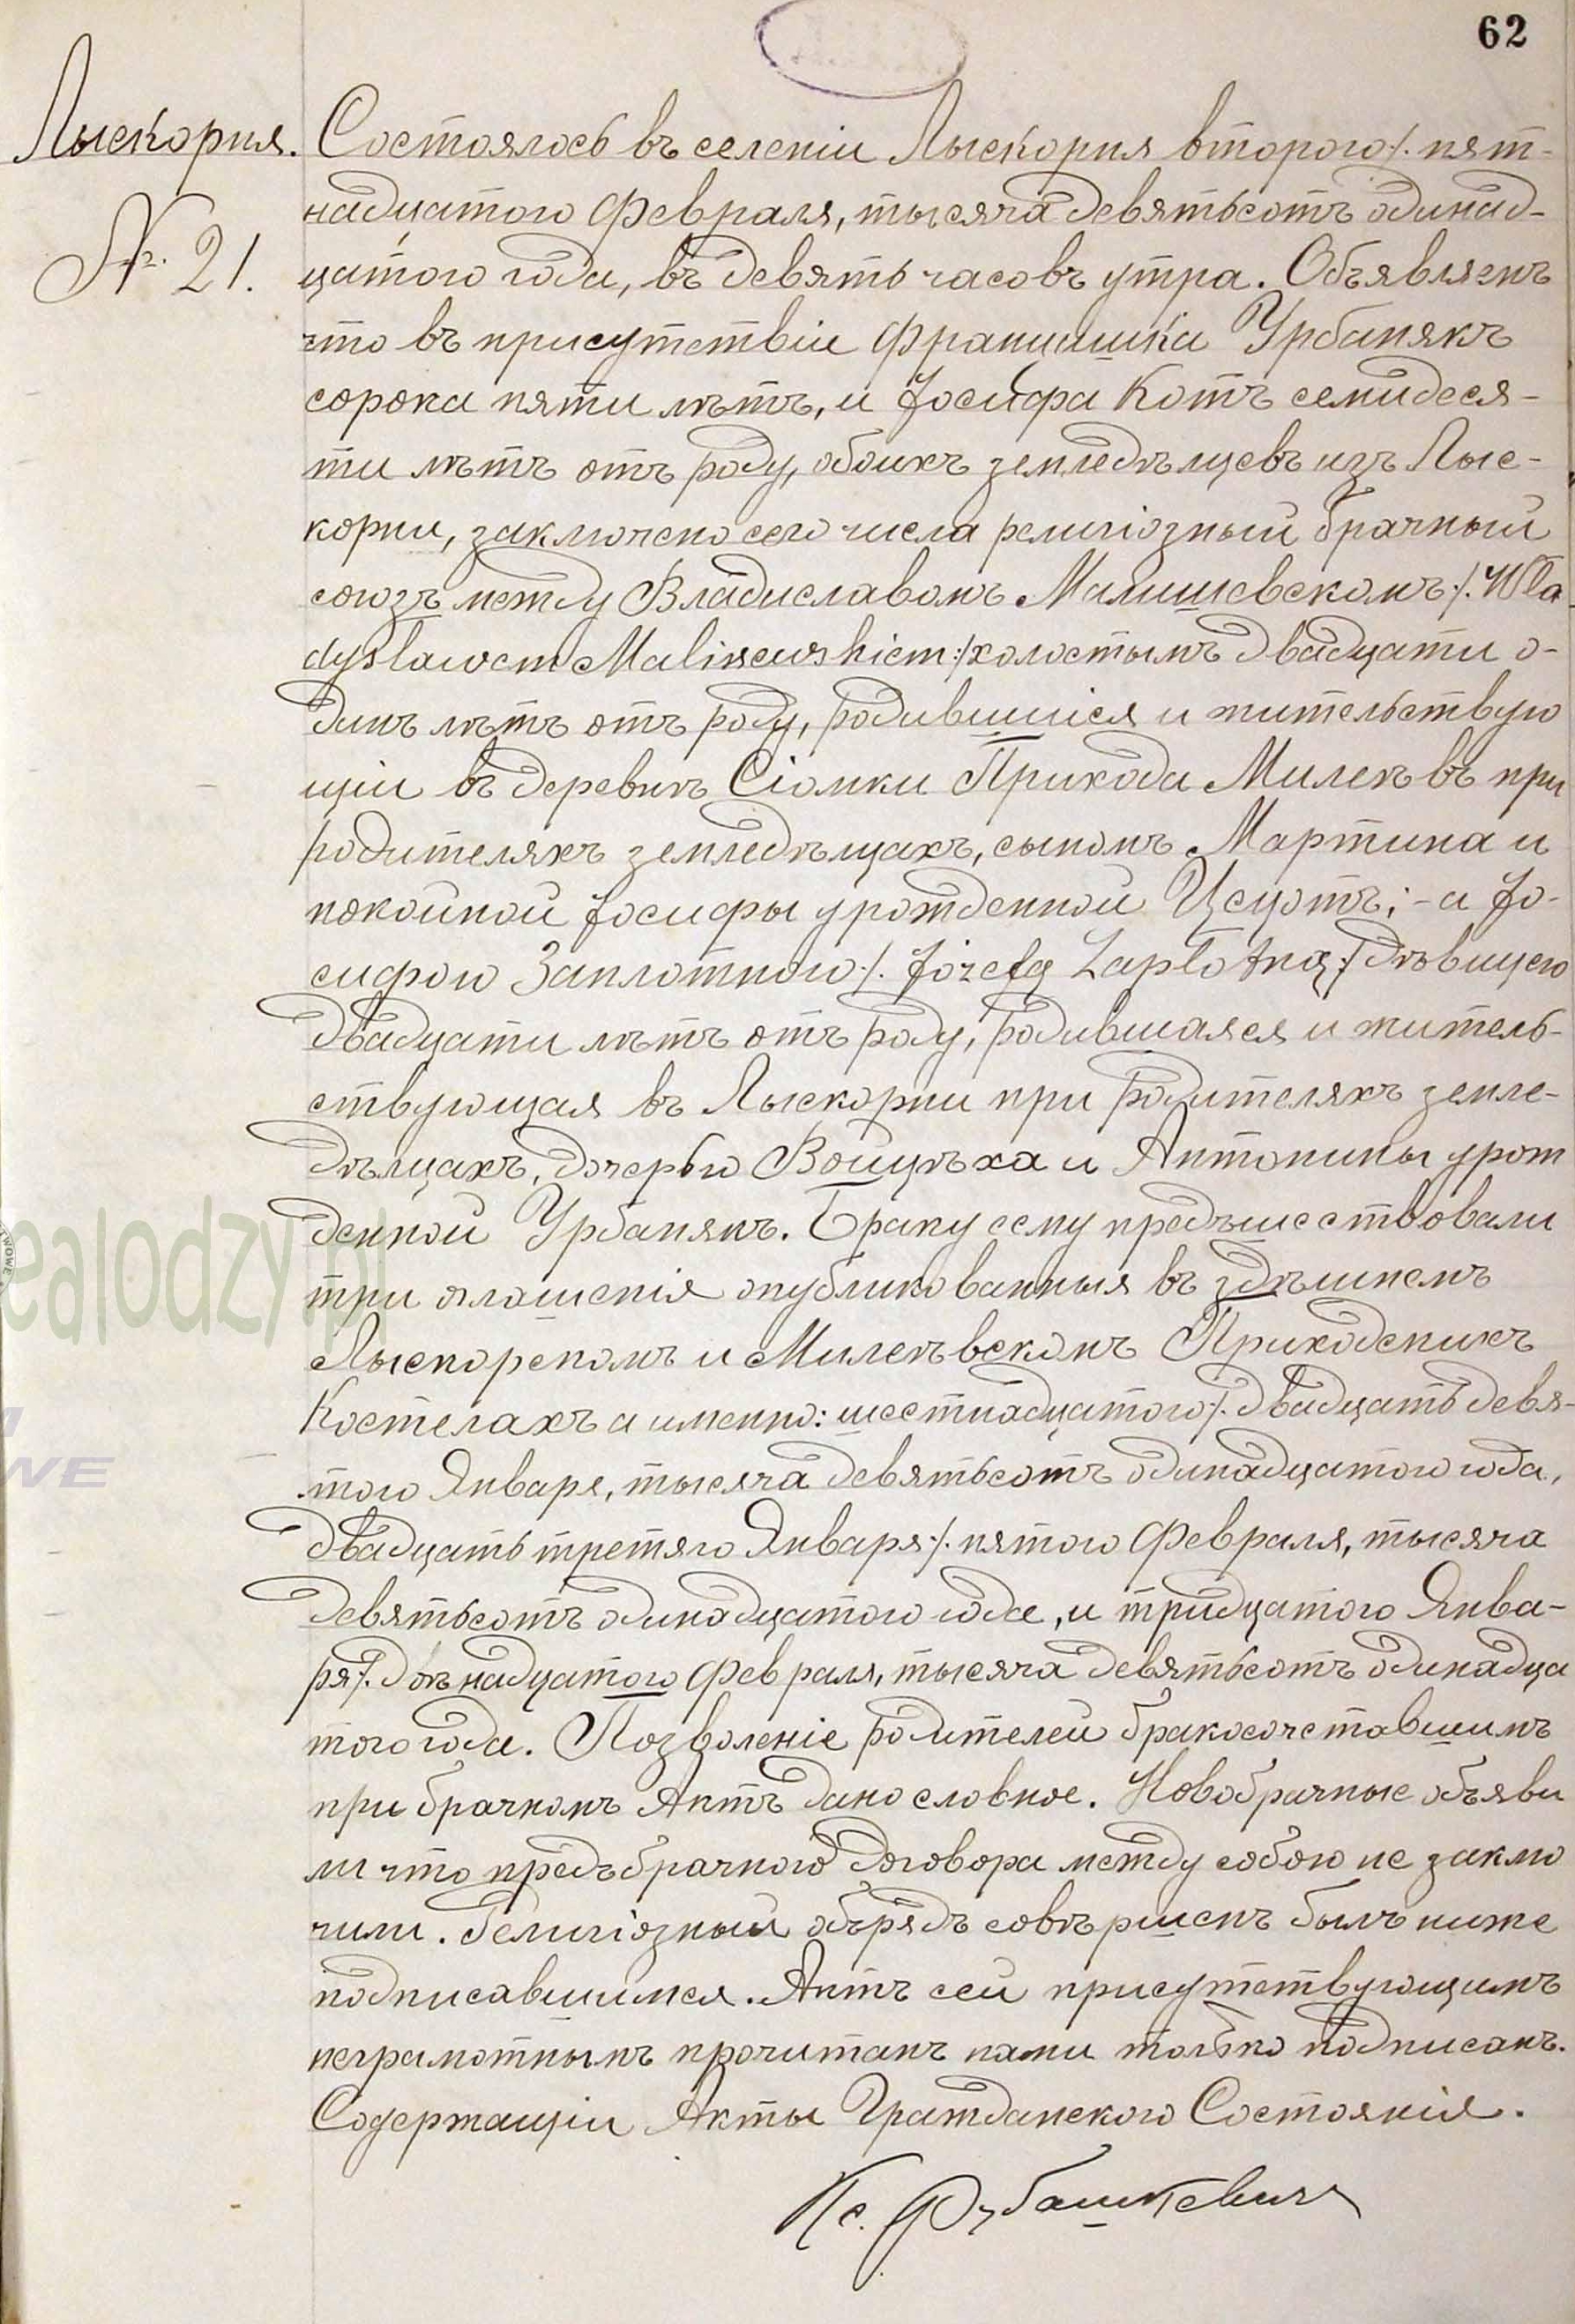 62
Лыскорня.
№ 21.
Состоялось въ селеніи Лыскорня второго /. пят-
надцатого Февраля, тысяча девятьсотъ одинад-
цатого года, въ девять часовъ утра. Объявляемъ
что въ присутствіи Францишка Урбанякъ
сорока пяти лѣтъ, и Іосифа Котъ семидеся-
ти лѣтъ отъ роду, обоихъ земледѣльцевъ изъ Лыс-
корни, заключено сего числа религіозный брачный
союзъ между Владиславомъ Малишевскомъ /. Wła-
dysławem Maliszewskiem :/ холостымъ двадцати о-
динъ лѣтъ отъ роду, родившійся и жительствую
щій въ деревнѣ Сіомки Прихода Милеювъ при
родителяхъ земледѣльцахъ, сыномъ Мартина и
покойной Іосифы урожденной ; - а Іо-
сифою Заплотною /. Józefą Zapłotną :/ дѣвицею
двадцати лѣтъ отъ роду, родившаяся и житель-
ствующая въ Лыскорни при родителяхъ земле-
дѣльцахъ, дочерью Войцѣха и Антонины урож
денной Урбанякъ. Браку сему предшествовали
три оглашенія опубликованныя въ здѣшнемъ
Лыскорскомъ и Приходскихъ
Костелахъ а именно: шестнадцатого /. двадцать девя-
того Января, тысяча девятьсотъ одинадцатого года,
двадцать третяго Января /. пятого Февраля, тысяча
девятьсотъ одинадцатого года, и тридцатого Янва-
ря /. двѣнадцатого Февраля, тысяча девятьсотъ одинадца
того года. Позволеніе родителей бракосочетавшимъ
при брачномъ Актѣ дано словное. Новобрачные объяви
ли что предъбрачного договора между собою не заклю
чили. Религіозный обрядъ совѣршенъ былъ ниже
подписавшимся. Актъ сей присутствующимъ
неграмотнымъ прочитанъ нами только подписанъ.
Содержащій Акты Гражданского Состоянія.
Кс.
ealodzy.pl